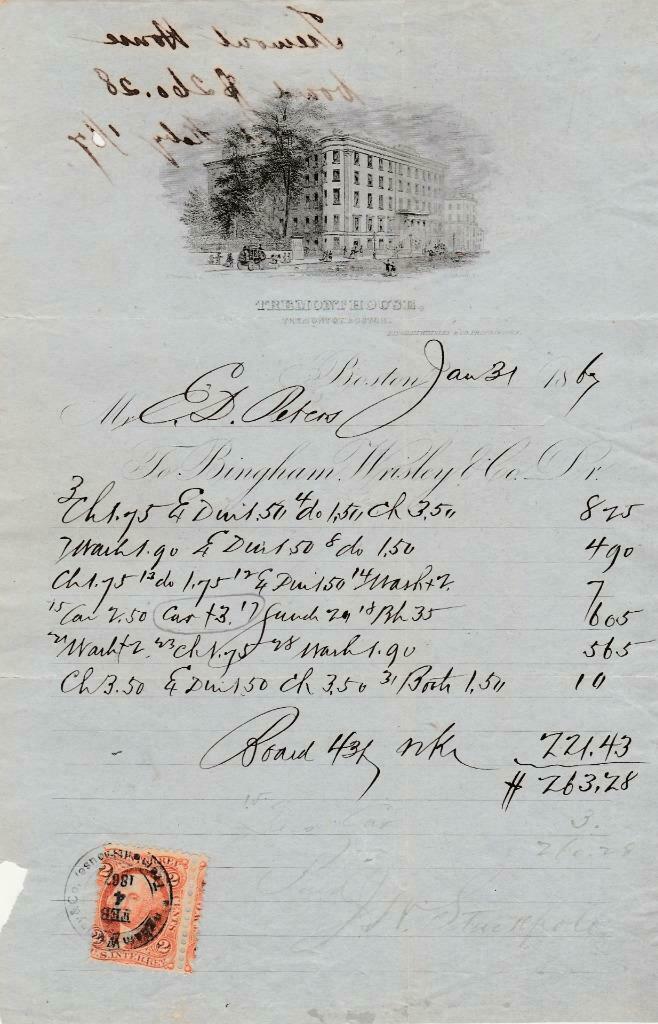 Tremont House
board $260.28
Feby 1/67
TREMONT HOUSE.
TREMONT ST. BOSTON.
BINGHAM, WRISLEY & CO. PROPRIETORS.
Boston Jan 31 1867
Mr E. D. Peters
To Bingham, Wrisley & Co. Dr.
3 Ch 1.75 E Din 1.50 4 do 1.50 Ch 3.50 8 25
7 Wash 1.90 E Din 1.50 8 do 1.50 4 90
Ch 1.75 13 do 1.75 12 E Din 1.50 14 Wash 2. 7
15 Car 2.50 Car 3. 17 20 18 Bh 35 6 05
21 Wash 2. 23 Ch 1.75 28 Wash 1.90 5 65
Ch 3.50 E Din 1.50 Ch 3.50 31 Both 1.50 10
Board wks 221.43
$ 263.28
15 Car 3.
260.28
2 CENTS 2
U.S. INTER. REV.
FEB
4
1867